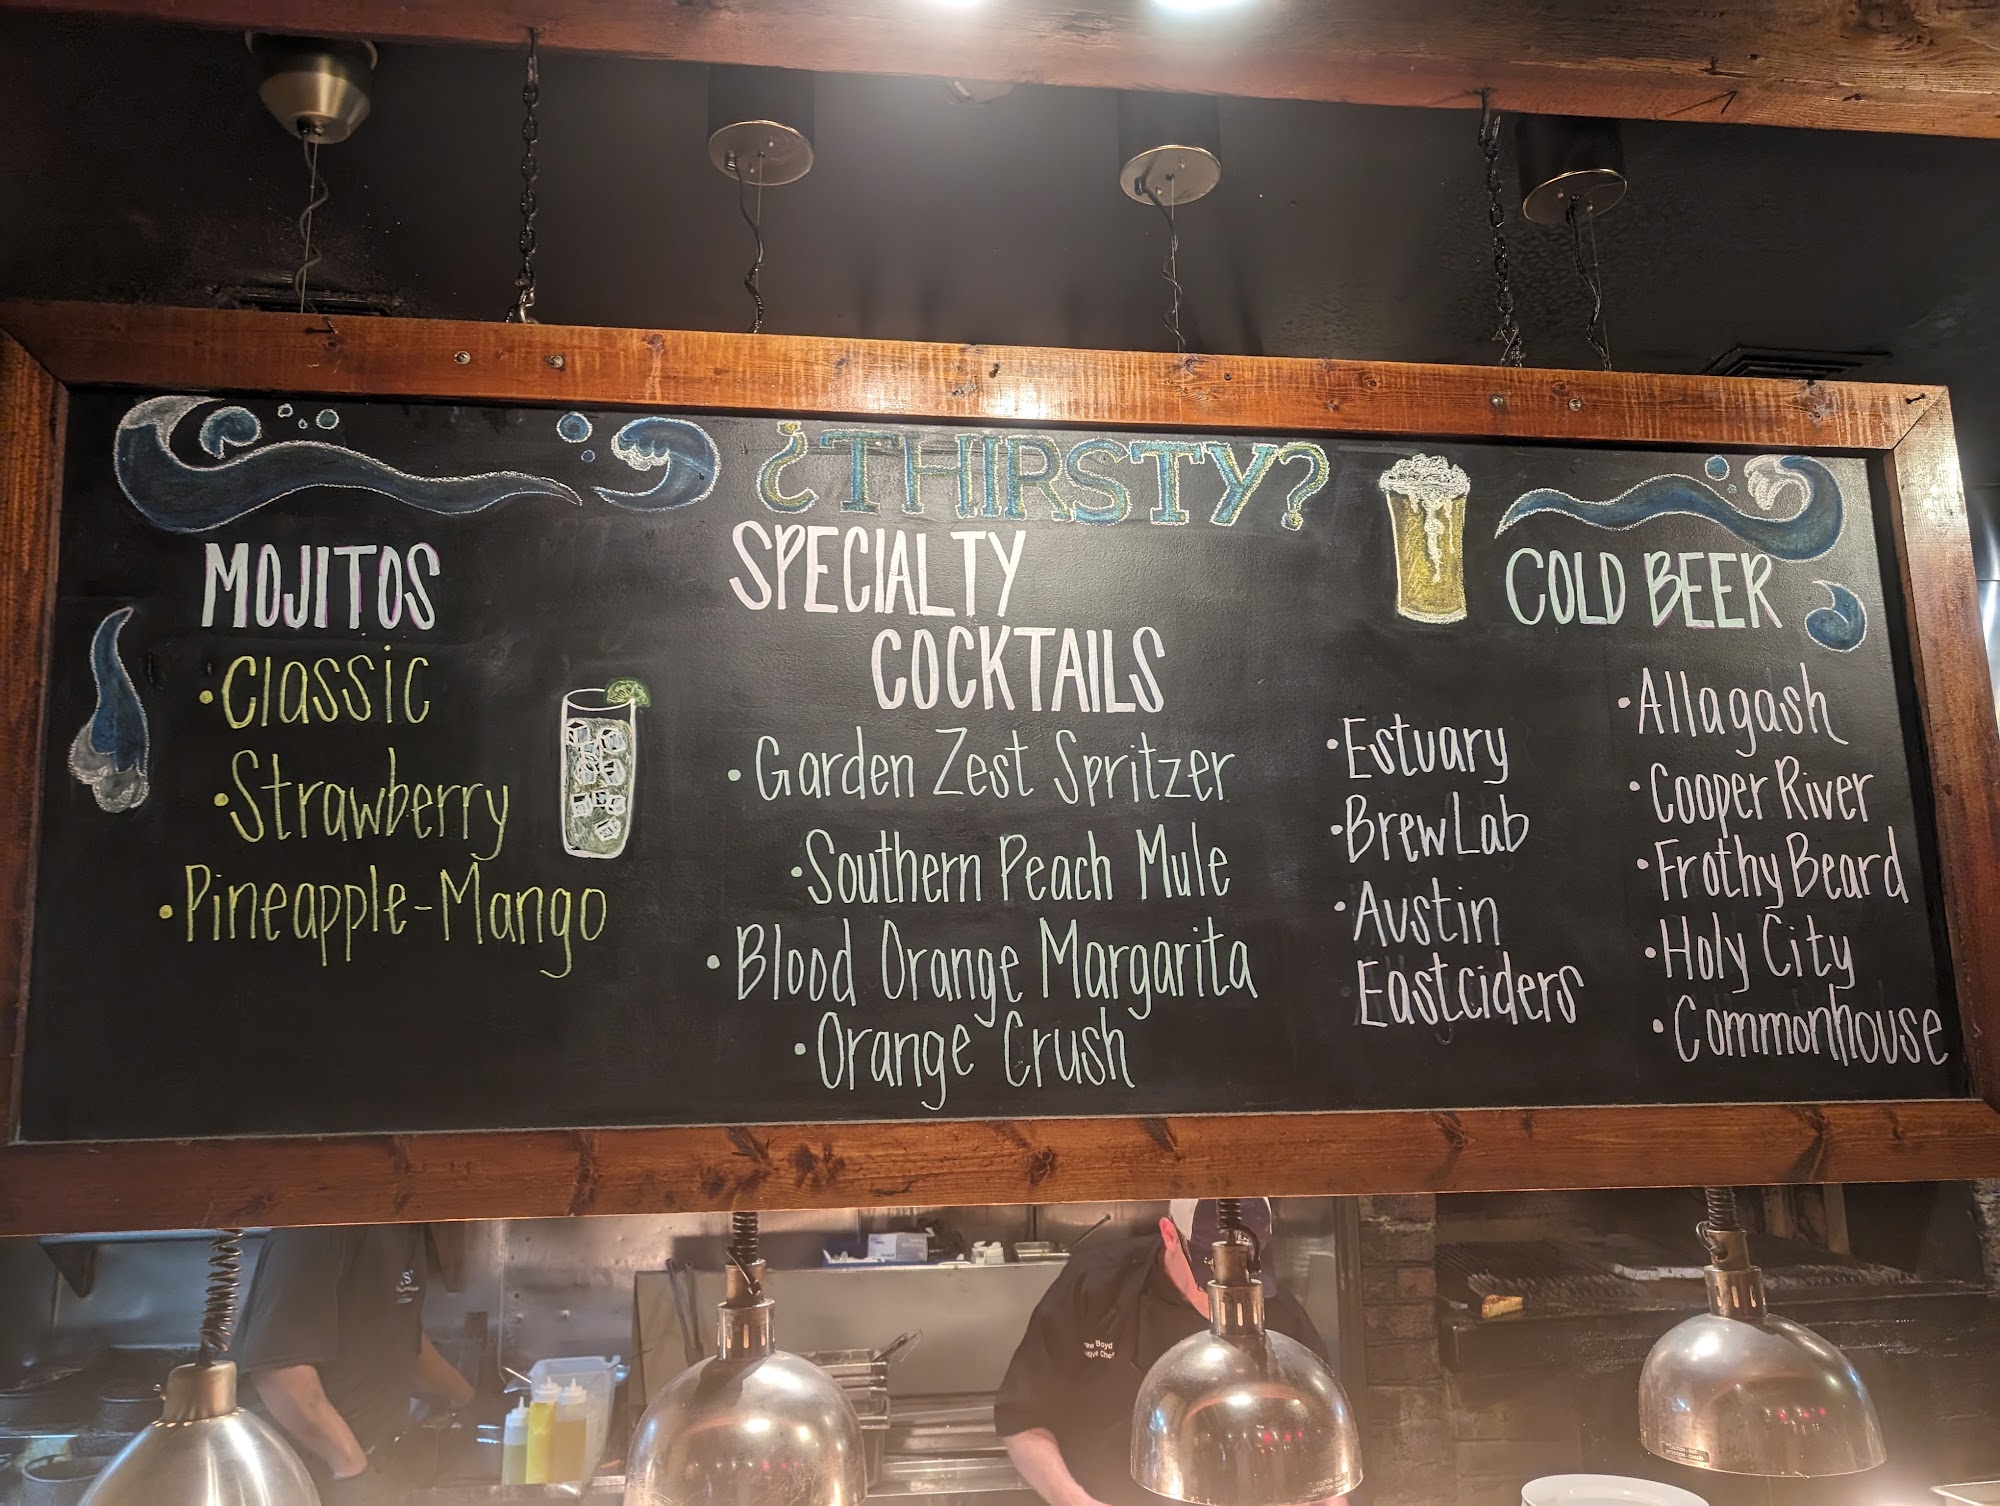 ¿THIRSTY?
MOJITOS
•Classic
•Strawberry
•Pineapple-Mango
SPECIALTY
COCKTAILS
•Garden Zest Spritzer
•Southern Peach Mule
•Blood Orange Margarita
•Orange Crush
COLD BEER
•Estuary
•BrewLab
•Austin
Eastciders
•Allagash
•Cooper River
•Frothy Beard
•Holy City
•Commonhouse
Boyd
Chef